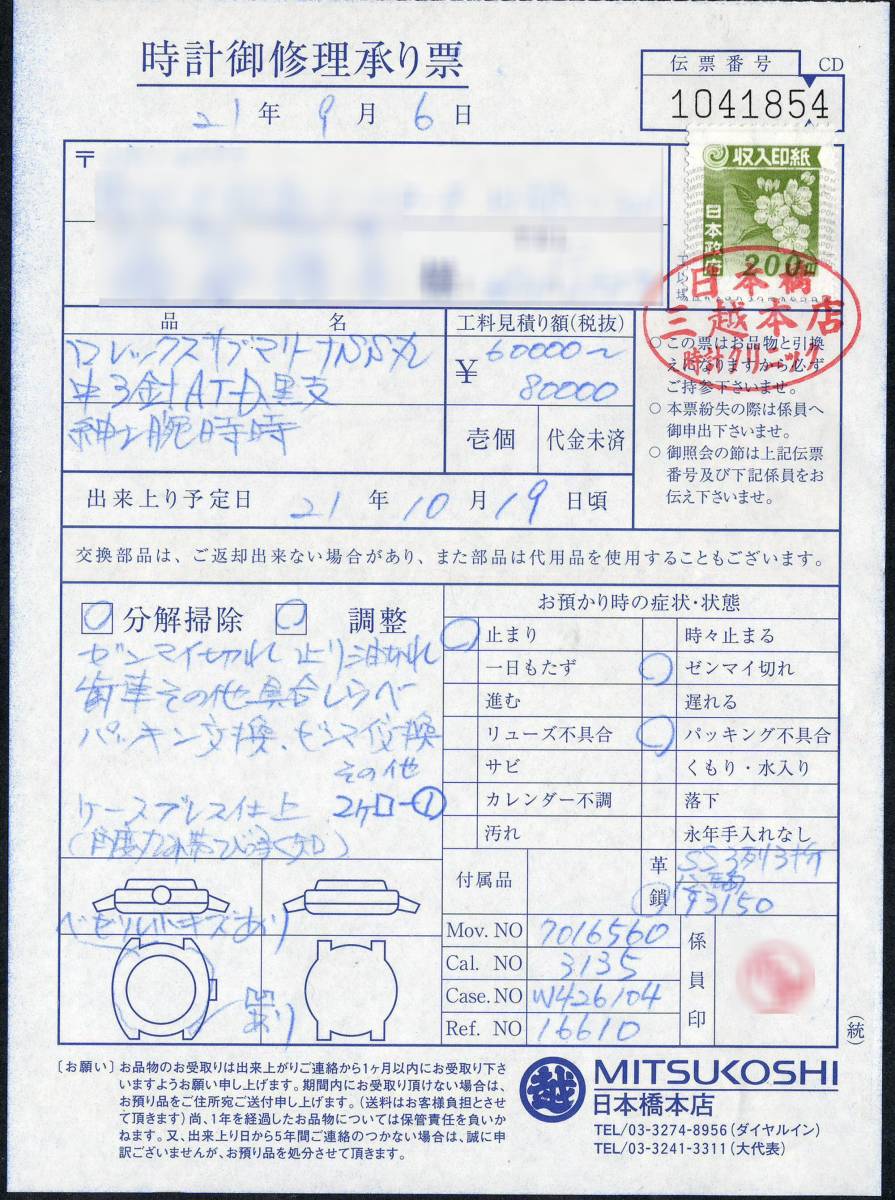 時計御修理承り票
21年 9月 6日
伝票番号 CD
1041854
〒
収入印紙
日本政府
200円
日本橋
三越本店
時計クリニック
品名
ロレックスサブマリーナSS丸
中3針AT-D.黒文
紳士腕時時
工料見積り額(税抜)
¥ 60000〜
80000
壱個 代金未済
○この票はお品物と引換
えになりますから必ず
ご持参下さいませ。
○本票紛失の際は係員へ
御申出下さいませ。
○御照会の節は上記伝票
番号及び下記係員をお
伝え下さいませ。
出来上り予定日 21年 10月 19日頃
交換部品は、ご返却出来ない場合があり、また部品は代用品を使用することもございます。
分解掃除 調整
ゼンマイ切れ 止り油切れ
歯車その他具合しらべ
パッキン交換、ゼンマイ交換
その他
ケースブレス仕上 2ケロー①
お預かり時の症状・状態
止まり 時々止まる
一日もたず ゼンマイ切れ
進む 遅れる
リューズ不具合 パッキング不具合
サビ くもり・水入り
カレンダー不調 落下
汚れ 永年手入れなし
付属品 革 SS3列3折
鎖 93150
ベゼル小キズあり
あり
Mov. NO 7016560
Cal. NO 3135
Case. NO W426104
Ref. NO 16610
係員印
(統)
〔お願い〕お品物のお受取りは出来上がりご連絡から1ヶ月以内にお受取り下さ
いますようお願い申し上げます。期間内にお受取り頂けない場合は、
お預り品をご住所宛ご送付申し上げます。(送料はお客様負担とさせ
て頂きます)尚、1年を経過したお品物については保管責任を負いか
ねます。又、出来上り日から5年間ご連絡のつかない場合は、誠に申
訳ございませんが、お預り品を処分させて頂きます。
越 MITSUKOSHI
日本橋本店
TEL/03-3274-8956(ダイヤルイン)
TEL/03-3241-3311(大代表)